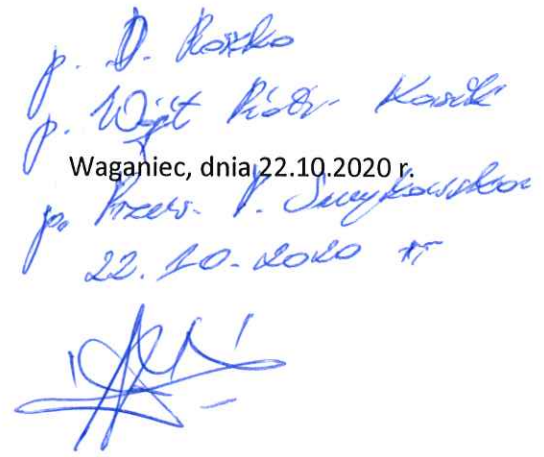 p. D. Roszko
p. Wójt Piotr Kosik
Waganiec, dnia 22.10.2020 r.
p. Przew. P.
22.10.2020 r